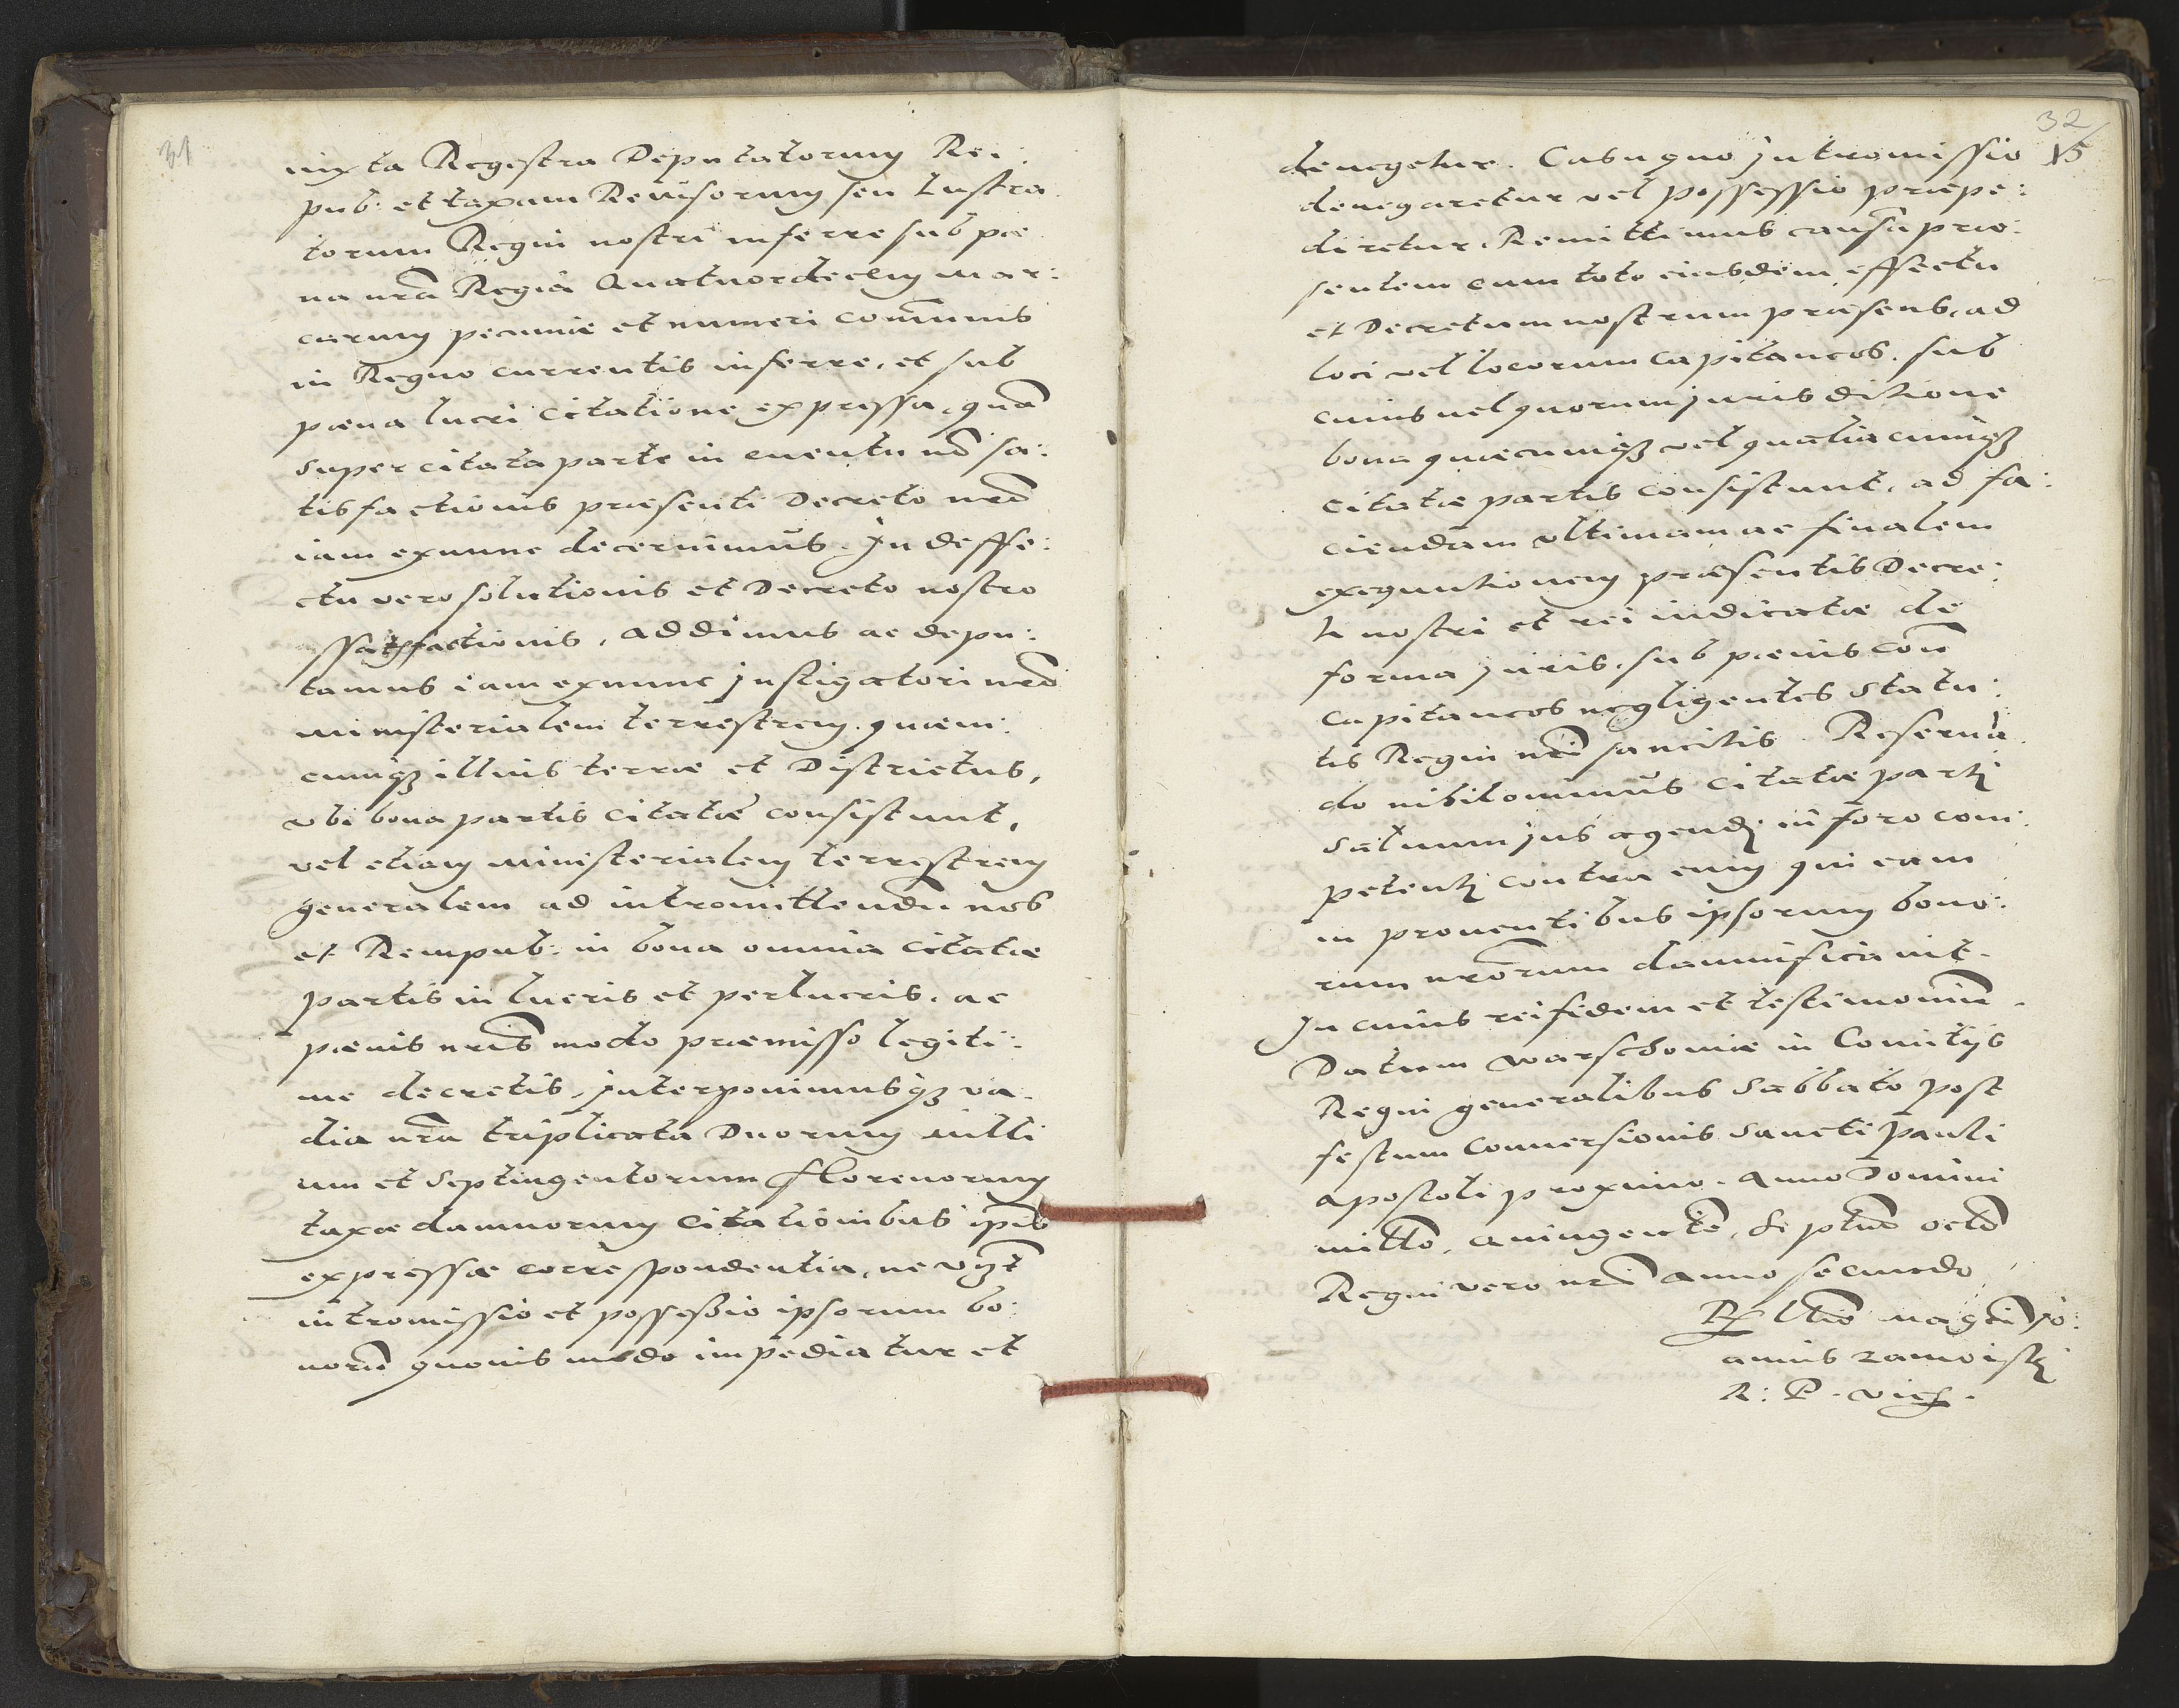 31
iuxta Regestra Deputatorum Rei
pub: et taxam Reuisorum seu Lustra
torum Regni nostri inferre sub pœ
na nr̃a Regia Quatuordecim mar:
carum pecuniæ et numeri com̃unis
in Regno currentis inferre, et sub
pœna lucri citatione expressa, quã
super citata parte in euentu nõ sa:
tisfactionis præsenti Decreto nr̃o
iam exnunc decernimus. In deffe:
ctu vero solutionis et Decreto nostro
ssatisfactionis, addimus ac depu:
tamus iam exnunc Instigatori nr̃o
ministerialem terrestrem quem:
cumqꝫ illius terræ et Districtus,
vbi bona partis citatæ consistunt,
vel etiam ministerialem terrestrem
generalem ad intromittendũ nos
et Rempub: in bona omnia citatæ
partis in lucris et perlucris, ac
pœnis nr̃is modo præmisso legiti:
me decretis, interponimusqꝫ va
dia nr̃a triplicata Duorum milli
um et Septingentorum Florenorum
taxæ damnorum citationibus ip̃is
expressæ correspondentia, ne vꝫt
intromissio et possessio ipsorum bo:
norũ quouis modo impediatur et
32
15
denegetur. Casu quo Intromissio
denegaretur vel possessio præpe:
diretur, Remittimus causã præ:
sentem cum toto eiusdem effectu
et Decretum nostrum præsens, ad
loci vel locorum Capitaneos, sub
cuius vel quorum jurisditione
bona quæcumqꝫ vel qualiacumqꝫ
citatæ partis consistunt, ad fa:
ciendam vltimam ac finalem
exequutionem præsentis Decre:
ti nostri et rei iudicatæ de
forma juris, sub pœnis con̄
Capitaneos negligentes statu:
tis Regni nr̃i sancitis. Reserua
do nihilominus citatæ parti
saluum jus agendi in foro com
petenti contra eum qui eam
in prouentibus ipsorum bono:
rum nr̃orum damnificauit.
In cuius rei fidem et testimoniũ.
Datum Warschouiæ in Comitijs
Regni generalibus Sabbato post
festum Conuersionis Sancti Pauli
Apostoli proximo. Anno Domini
millõ, Quingentẽ, Septuã octõ
Regni vero nr̃i Anno secundo
R̃ łłtio magcĩ Jo:
annis Zamoiski
R: P. vich.